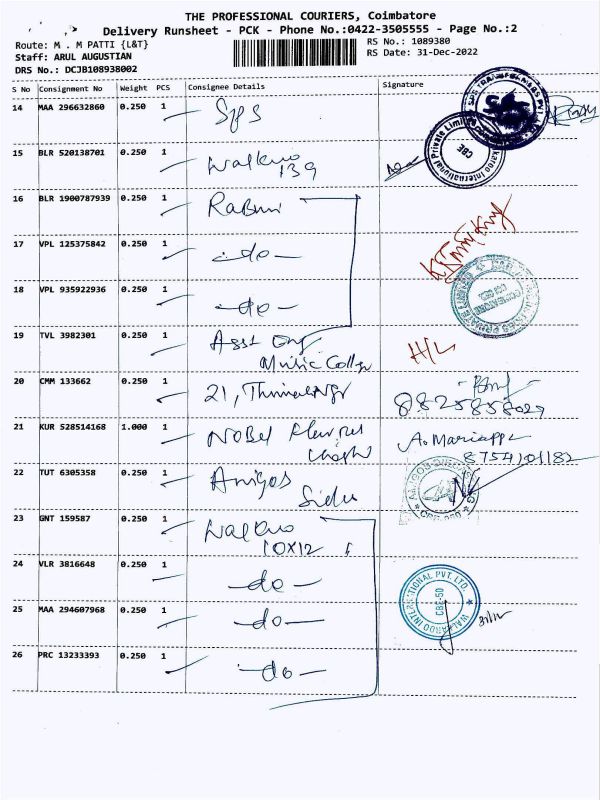 THE PROFESSIONAL COURIERS, Coimbatore
Delivery Runsheet - PCK - Phone No.:0422-3505555 - Page No.:2
Route: M . M PATTI {L&T}
RS No.: 1089380
Staff: ARUL AUGUSTIAN
RS Date: 31-Dec-2022
DRS No.: DCJB108938002
S No Consignment No Weight PCS Consignee Details Signature
14 MAA 296632860 0.250 1 Sps
15 BLR 520138701 0.250 1 walkaro
139
16 BLR 1900787939 0.250 1
17 VPL 125375842 0.250 1 -do-
18 VPL 935922936 0.250 1 -do-
19 TVL 3982301 0.250 1 Asst Eng H/L
Music College
20 CMM 133662 0.250 1 21, 
8825858029
21 KUR 528514168 1.000 1 Nobel A. Mariappa
8754101182
22 TUT 6305358 0.250 1 Amigos
Sidu
23 GNT 159587 0.250 1 walkaro
10X12
24 VLR 3816648 0.250 1 -do-
WALKAROO INTERNATIONAL PVT. LTD.
CBE-50
25 MAA 294607968 0.250 1 -do-
31/12
26 PRC 13233393 0.250 1 -do-